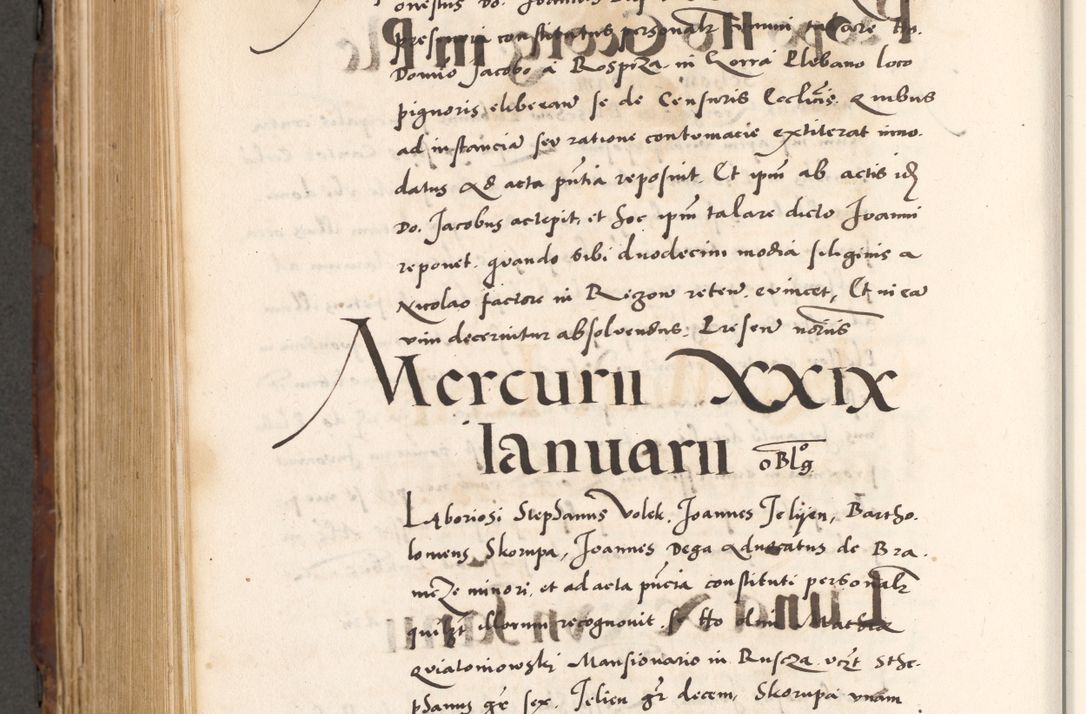 onestus Do. Joannes
presencia constitutus personalr talare tto.
Domino Jacobo a Rospiza in Gorra Plebano loco
pignoris, eliberan se de Censuris Eccliis. Quibus
ad instancia seu ratione contumacie extiterat inno.
datus Ad acta pntia reposuit. Et ipm ab actis id
Do. Jacobus accepit, et hoc ipm talare dicto Joanni
reponet. quando sibi duodecim modia siliginis a
Nicolao factore in Rigow reten. evincet, Et in ea
vim decernitur absolvendus. Presen noriis
Mercurii XXIX
Ianuarii oBlg
Laboriosi Stephanus Volek, Joannes Jelijen, Bartho.
lomeus Skorupa, Joannes Dega advocatus de Bra.
meze minori, et ad acta pncia constituti personalr
quilzt illorum recognovit se tto dno Mathia
Qviatoniowski Mansionario in Ruscza vczt Ste-
phanus gr sex, Jelien gr decem, Skorupa unam